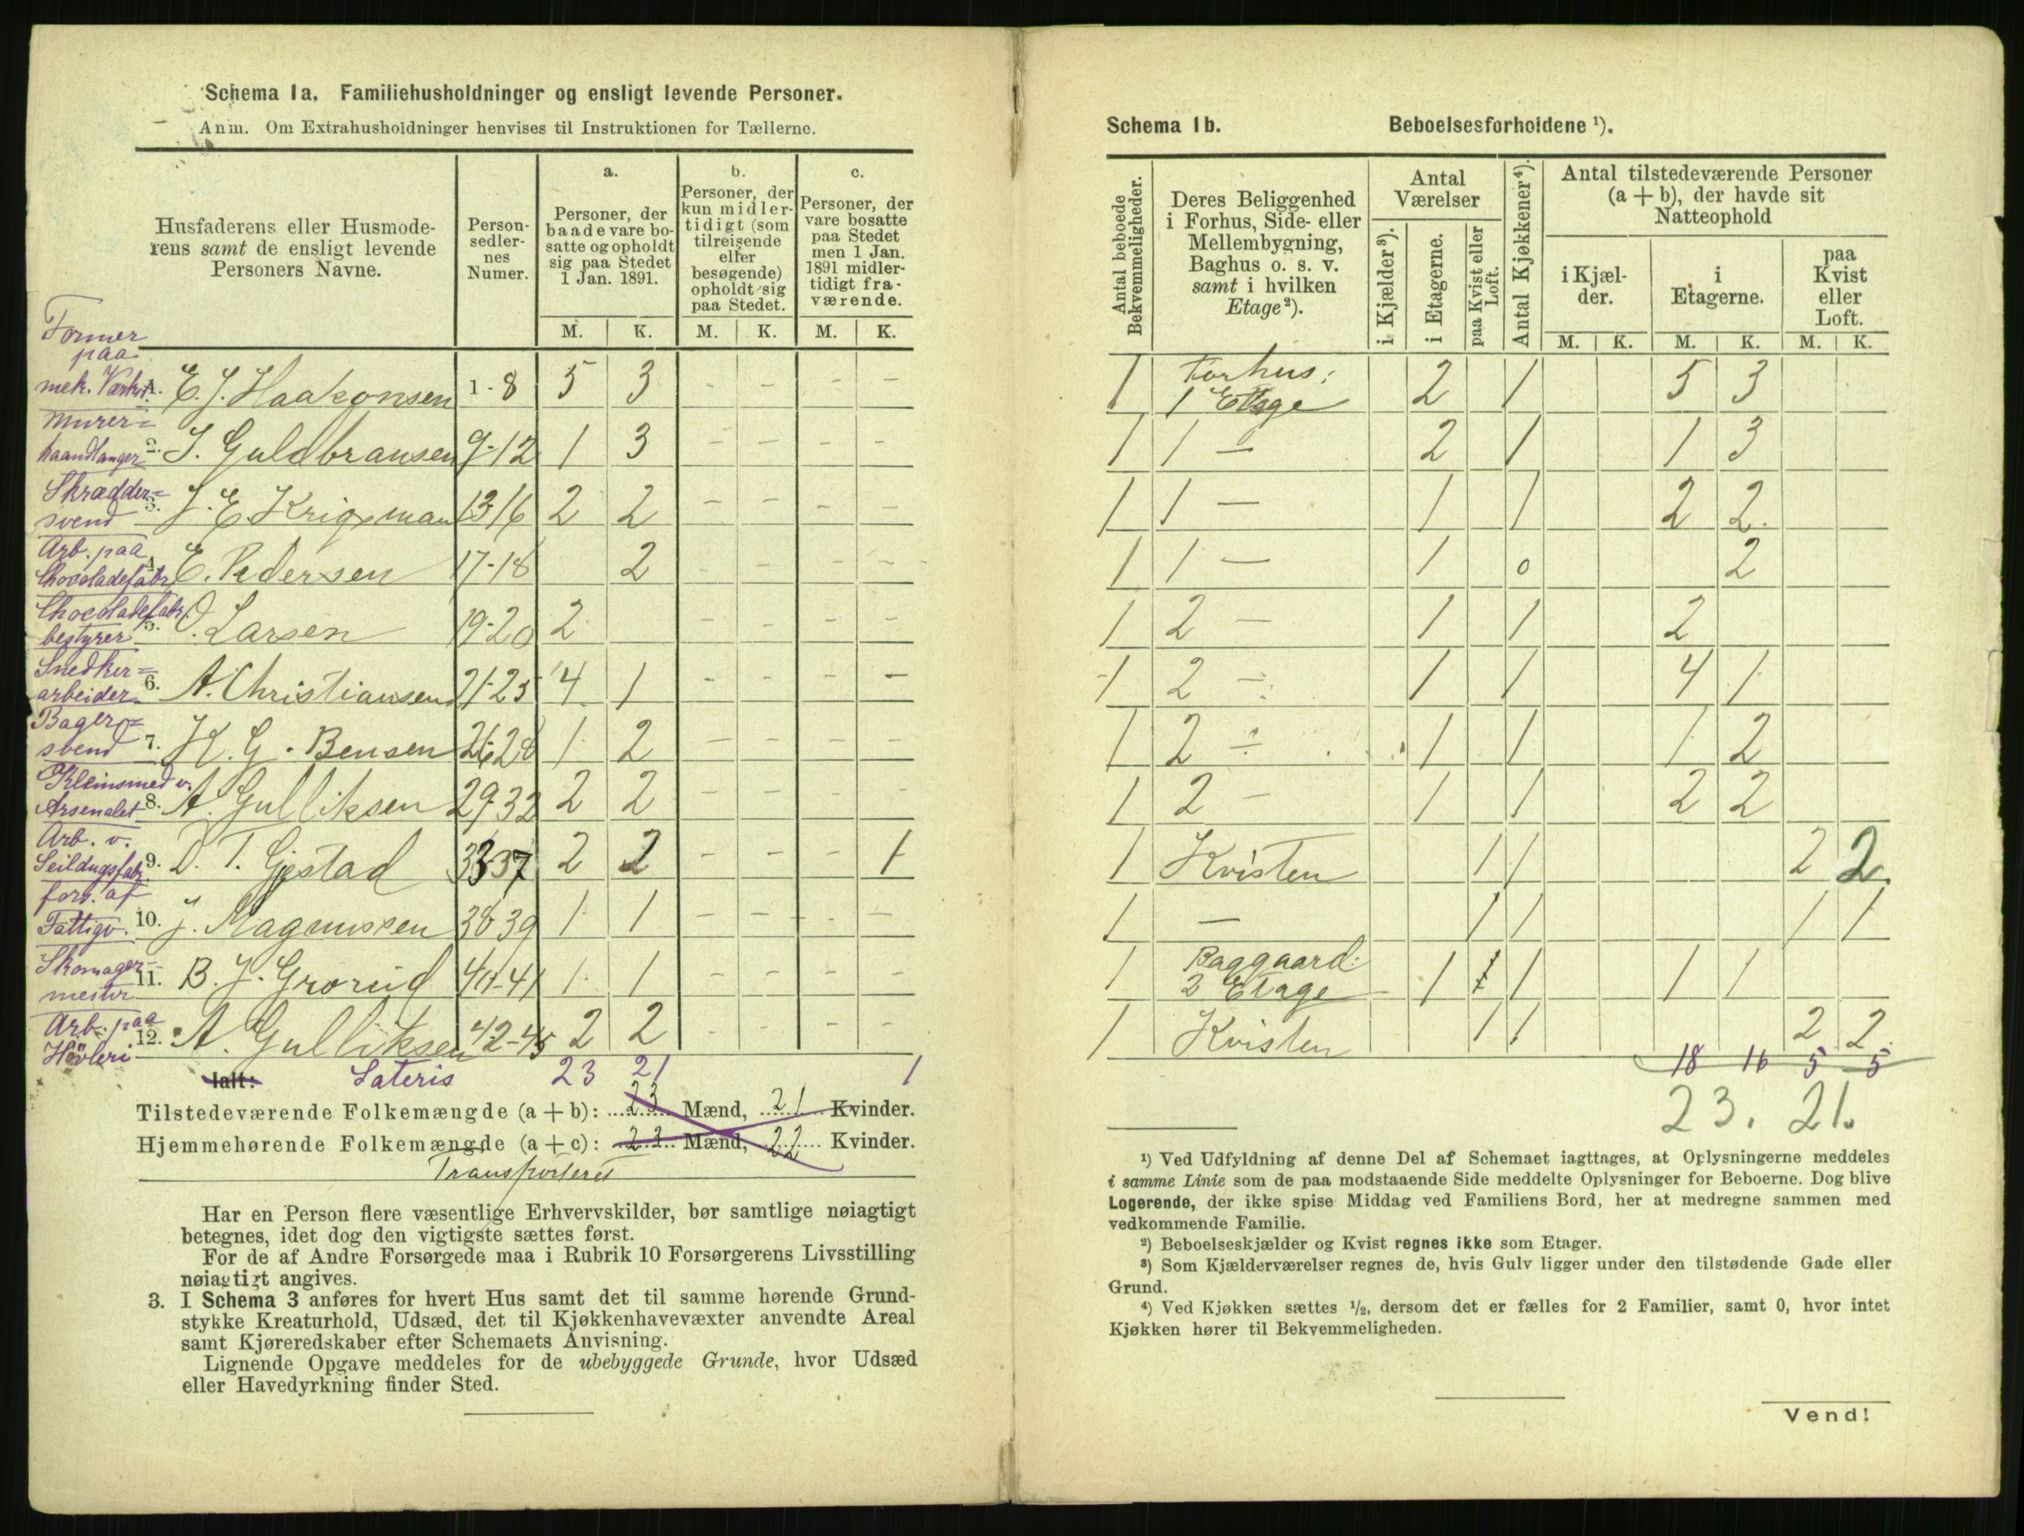 Schema 1a. Familiehusholdninger og ensligt levende Personer.
Anm. Om Extrahusholdninger henvises til Instruktionen for Tællerne.
Husfaderens eller Husmode-
rens samt de ensligt levende
Personers Navne.
Person-
sedler-
nes
Numer.
a.
Personer, der
baade vare bo-
satte og opholdt
sig paa Stedet
1 Jan. 1891.
b.
Personer, der
kun midler-
tidigt (som
tilreisende
eller
besøgende)
opholdt sig
paa Stedet.
c.
Personer, der
vare bosatte
paa Stedet
men 1 Jan.
1891 midler-
tidigt fra-
værende.
M. K. M. K. M. K.
Former
paa
mek. Værkst. 1. E. J. Haakonsen 1-8 5 3 - - - -
Murer=
haandlanger 2. J. Guldbransen 9-12 1 3 - - - -
Skrædder=
svend 3. J. E. Krigsman 13-16 2 2 - - - -
Arb. paa
Chocoladefabr. 4. E. Pedersen 17-18 2 - - - -
Chocoladefabr.
bestyrer 5. O. Larsen 19-20 2 - - - -
Snedker=
arbeider 6. A. Christiansen 21-25 4 1 - - - -
Bager=
svend 7. K. G. Bensen 26-28 1 2 - - - -
Kleinsmed v.
Arsenalet 8. A. Gulliksen 29-32 2 2 - - - -
Arb. v.
Seildugsfabr. 9. D. T. Gjestad 33-37 2 2 - - - 1
fors. af
Fattigv. 10. J. Magnussen 38-39 1 1 - - - -
Skomager-
mester 11. B. J. Grorud 40-41 1 1 - - - -
Arb. paa
Høvleri 12. A. Gulliksen 42-45 2 2 - - - -
Ialt: Lateris 23 21 1
Tilstedeværende Folkemængde (a + b): 23 Mænd, 21 Kvinder.
Hjemmehørende Folkemængde (a + c): 23 Mænd, 22 Kvinder.
Transporteret
Har en Person flere væsentlige Erhvervskilder, bør samtlige nøiagtigt
betegnes, idet dog den vigtigste sættes først.
For de af Andre Forsørgede maa i Rubrik 10 Forsørgerens Livsstilling
nøiagtigt angives.
3. I Schema 3 anføres for hvert Hus samt det til samme hørende Grund-
stykke Kreaturhold, Udsæd, det til Kjøkkenhavevæxter anvendte Areal
samt Kjøreredskaber efter Schemaets Anvisning.
Lignende Opgave meddeles for de ubebyggede Grunde, hvor Udsæd
eller Havedyrkning finder Sted.
Schema 1b. Beboelsesforholdene ¹).
Antal beboede
Bekvemmeligheder.
Deres Beliggenhed
i Forhus, Side- eller
Mellembygning,
Baghus o. s. v.
samt i hvilken
Etage²).
Antal
Værelser
i Kjælder³).
i Etagerne.
paa Kvist eller
Loft.
Antal Kjøkkener⁴).
Antal tilstedeværende Personer
(a + b), der havde sit
Natteophold
i Kjæl-
der.
i
Etagerne.
paa
Kvist
eller
Loft.
M. K. M. K. M. K.
1 Forhus: 1 Etage 2 1 5 3
1 1 — 2 1 1 3
1 1 — 1 1 2 2
1 1 — 1 0 2
1 2 — 1 1 2
1 2 — 1 1 4 1
1 2 — 1 1 1 2
1 2 — 1 1 2 2
1 Kvisten 1 1 2 2
1 — 1 1 1 1
1 Baggaard: 2 Etage 1 1 1 1 1
1 Kvisten 1 1 2 2
18 16 5 5
23. 21.
¹) Ved Udfyldning af denne Del af Schemaet iagttages, at Oplysningerne meddeles
i samme Linie som de paa modstaaende Side meddelte Oplysninger for Beboerne. Dog blive
Logerende, der ikke spise Middag ved Familiens Bord, her at medregne sammen med
vedkommende Familie.
²) Beboelseskjælder og Kvist regnes ikke som Etager.
³) Som Kjælderværelser regnes de, hvis Gulv ligger under den tilstødende Gade eller
Grund.
⁴) Ved Kjøkken sættes ½, dersom det er fælles for 2 Familier, samt 0, hvor intet
Kjøkken hører til Bekvemmeligheden.
Vend!